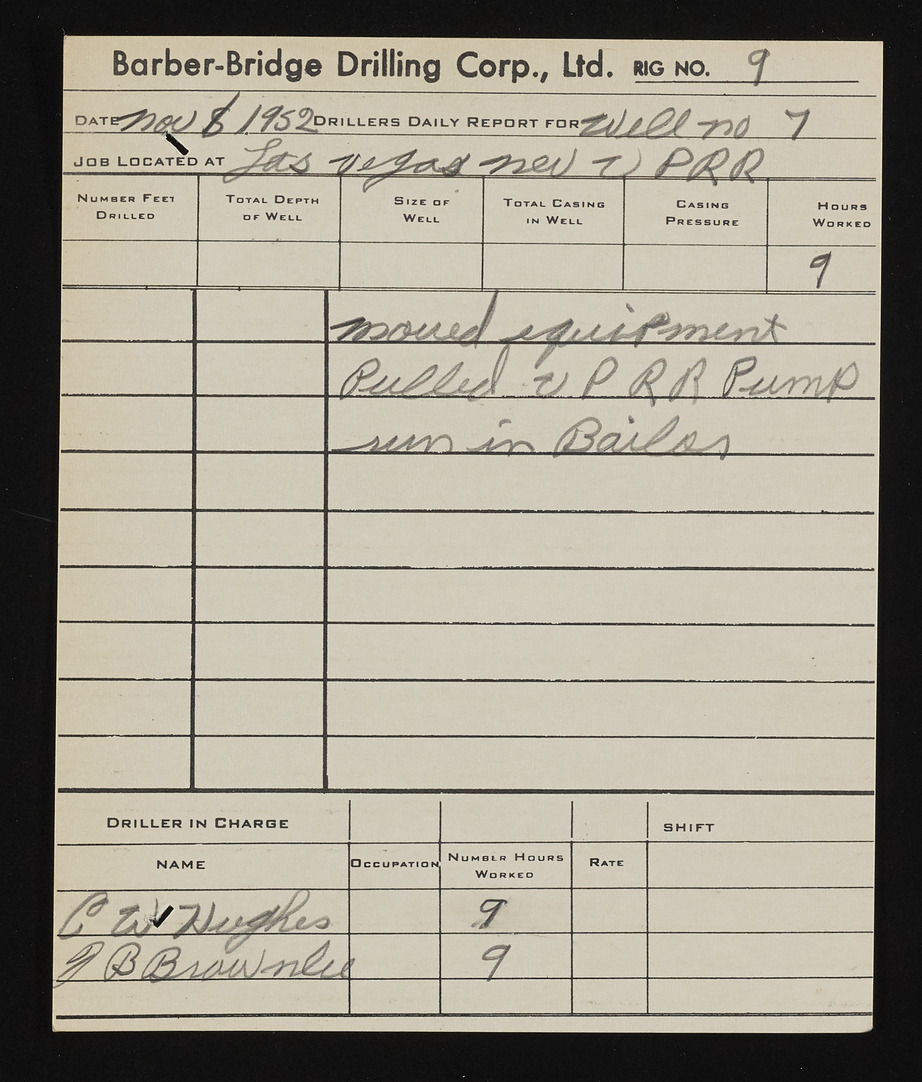 Barber-Bridge Drilling Corp., Ltd. RIG NO. 9
DATE Nov 8 1952 DRILLERS DAILY REPORT FOR Well no 7
JOB LOCATED AT Las Vegas Nev U P R R
NUMBER FEET DRILLED TOTAL DEPTH OF WELL SIZE OF WELL TOTAL CASING IN WELL CASING PRESSURE HOURS WORKED
9
moved equipment
Pulled U P R R Pump
run in Bailor
DRILLER IN CHARGE SHIFT
NAME OCCUPATION NUMBER HOURS WORKED RATE
C W Hughes 9
B Brownlee 9